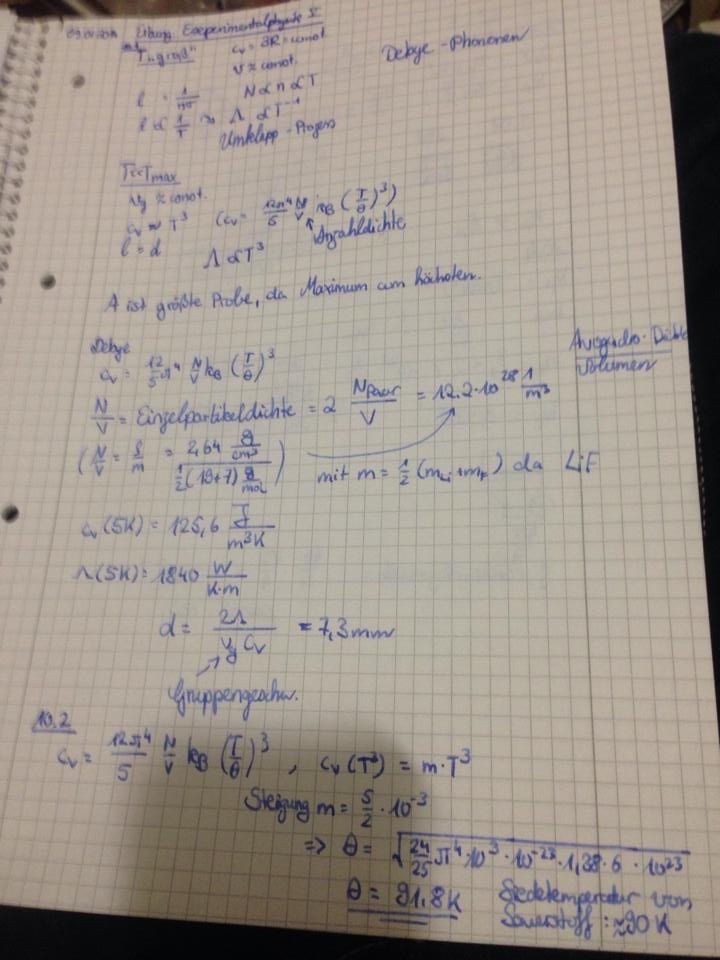 Übung Experimentalphysik V
T "groß" c_v = 3R = const.
v ≈ const.
Debye-Phononen
l = 1/nσ N ∝ n ∝ T
l ∝ 1/T => Λ ∝ T^-1
Umklapp-Prozess
T<<T_max
v_g ≈ const.
c_v ~ T^3 (c_v = 12π^4/5 N/V k_B (T/θ)^3)
l = d Anzahldichte
Λ ∝ T^3
A ist größte Probe, da Maximum am höchsten.
Debye
c_v = 12/5 π^4 N/V k_B (T/θ)^3
Avogadro · Dichte
Volumen
N/V = Einzelpartikeldichte = 2 N_Paar/V = 12.2·10^28 1/m^3
(N/V = ρ/m = 2,64 g/cm^3 / 1/2(19+7) g/mol) mit m = 1/2 (m_Li + m_F) da LiF
c_v(5K) = 125,6 J/m^3K
Λ(5K) = 1840 W/K·m
d = 2Λ/v_g c_v = 7,3mm
Gruppengeschw.
10.2
c_v = 12π^4/5 N/V k_B (T/θ)^3 , c_v(T^3) = m·T^3
Steigung m = 5/2 · 10^-3
=> θ = √24/25 π^4·10^3·10^-23·1,38·6·10^23
θ = 91,8K Siedetemperatur von
Sauerstoff: ≈90K